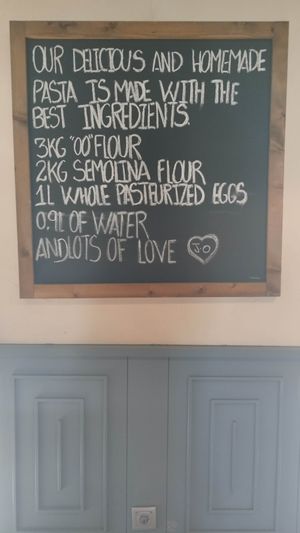 OUR DELICIOUS AND HOMEMADE
PASTA IS MADE WITH THE
BEST INGREDIENTS.
3KG "00" FLOUR
2KG SEMOLINA FLOUR
1L WHOLE PASTEURIZED EGGS
0.9L OF WATER
AND LOTS OF LOVE J.O